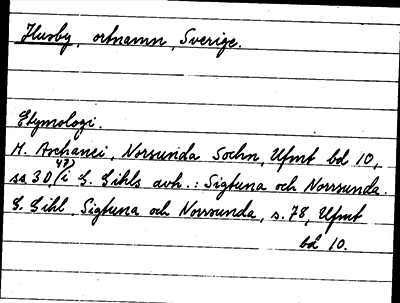 Husby, ortnamn, Sverige.
Etymologi.
M. Aschanei, Norsunda Sochn, Ufmt bd 10,
ss. 30, 47, i G. Gihls avh.: Sigtuna och Norrsunda.
G. Gihl, Sigtuna och Norrsunda, s. 78, Ufmt
bd 10.